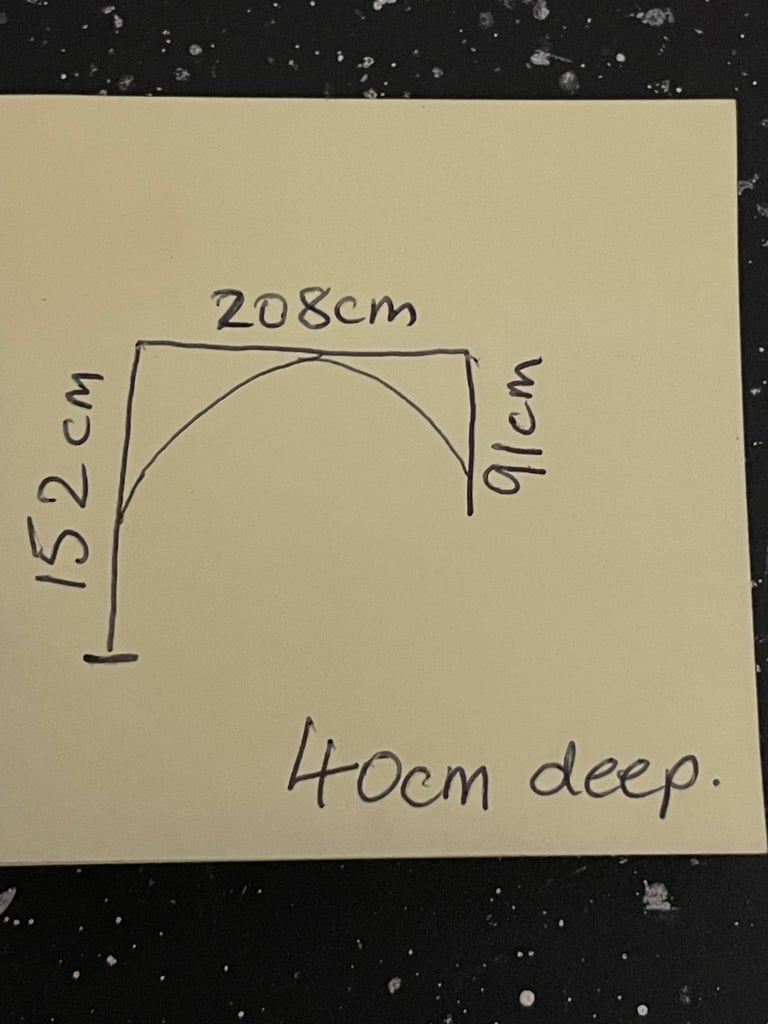 208cm
152cm
91cm
40cm deep.